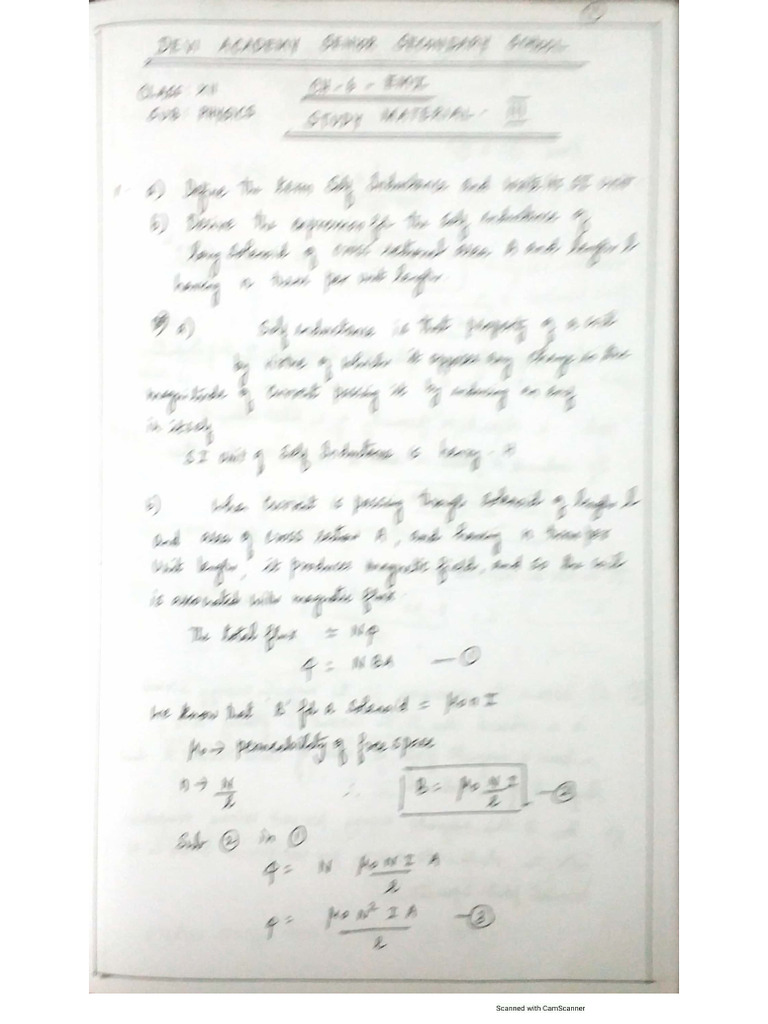 DEVI ACADEMY SENIOR SECONDARY SCHOOL
CLASS: XII
CH-6 - EMI
SUB: PHYSICS
STUDY MATERIAL - III
a) Define the term Self Inductance and write its SI unit
b) Derive the expression for the self inductance of
long solenoid of cross sectional area A and length l
having n turns per unit length.
a) Self inductance is that property of a coil
by virtue of which it oppose any change in the
magnitude of current passing it by inducing an emf
in itself
SI unit of Self Inductance is henry - H
When current is passing through solenoid of length l
and area of cross section A, and having n turns per
unit length, it produces magnetic field, and so the coil
is associated with magnetic flux.
The total flux = Nφ
φ = NBA — ①
We know that 'B' for a solenoid = μ₀nI
μ₀ → permeability of free space
n → N/l ∴ B = μ₀NI/l — ②
Sub ② in ①
φ = N μ₀NI A / l
φ = μ₀N²IA / l — ③
Scanned with CamScanner